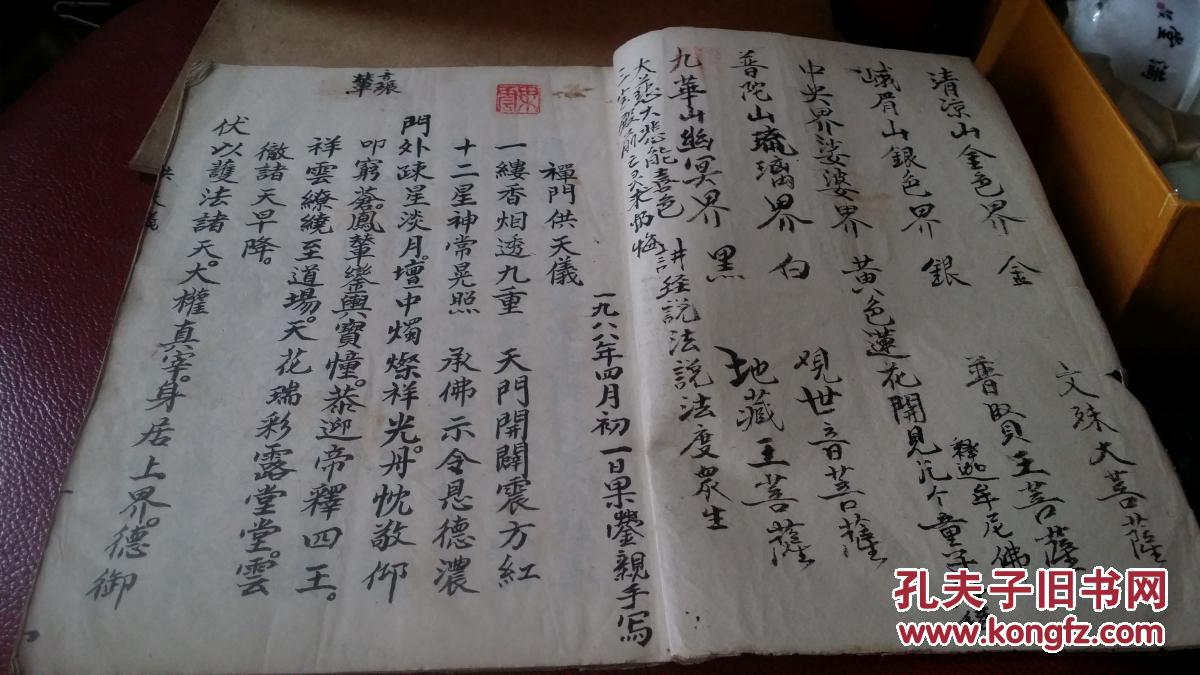 清涼山金色界 金 文殊大菩薩
峨眉山銀色界 銀 普賢王菩薩
中央界娑婆界 黄色蓮花開見 童子 釋迦牟尼佛
普陀山琉璃界 白 观世音菩薩
九華山幽冥界 黑 地藏王菩薩
大慈大悲能喜色 讲经説法説法度衆生
殿前
一九八八年四月初一日果鑾親手写
禪門供天儀
一縷香烟透九重 天門開闢震方紅
十二星神常晃照 承佛示令息德濃
門外疎星淡月。壇中燭燦祥光。丹忱敬仰
叩穹蒼。鳳輦鑾輿寶憧。恭迎帝釋四王。
祥雲繚繞至道場。天花瑞彩露堂堂。雲
徹諸天早降。
伏以護法諸天。大權真宰。身居上界。德御
音張
華
孔夫子旧书网
www.kongfz.com
堂满